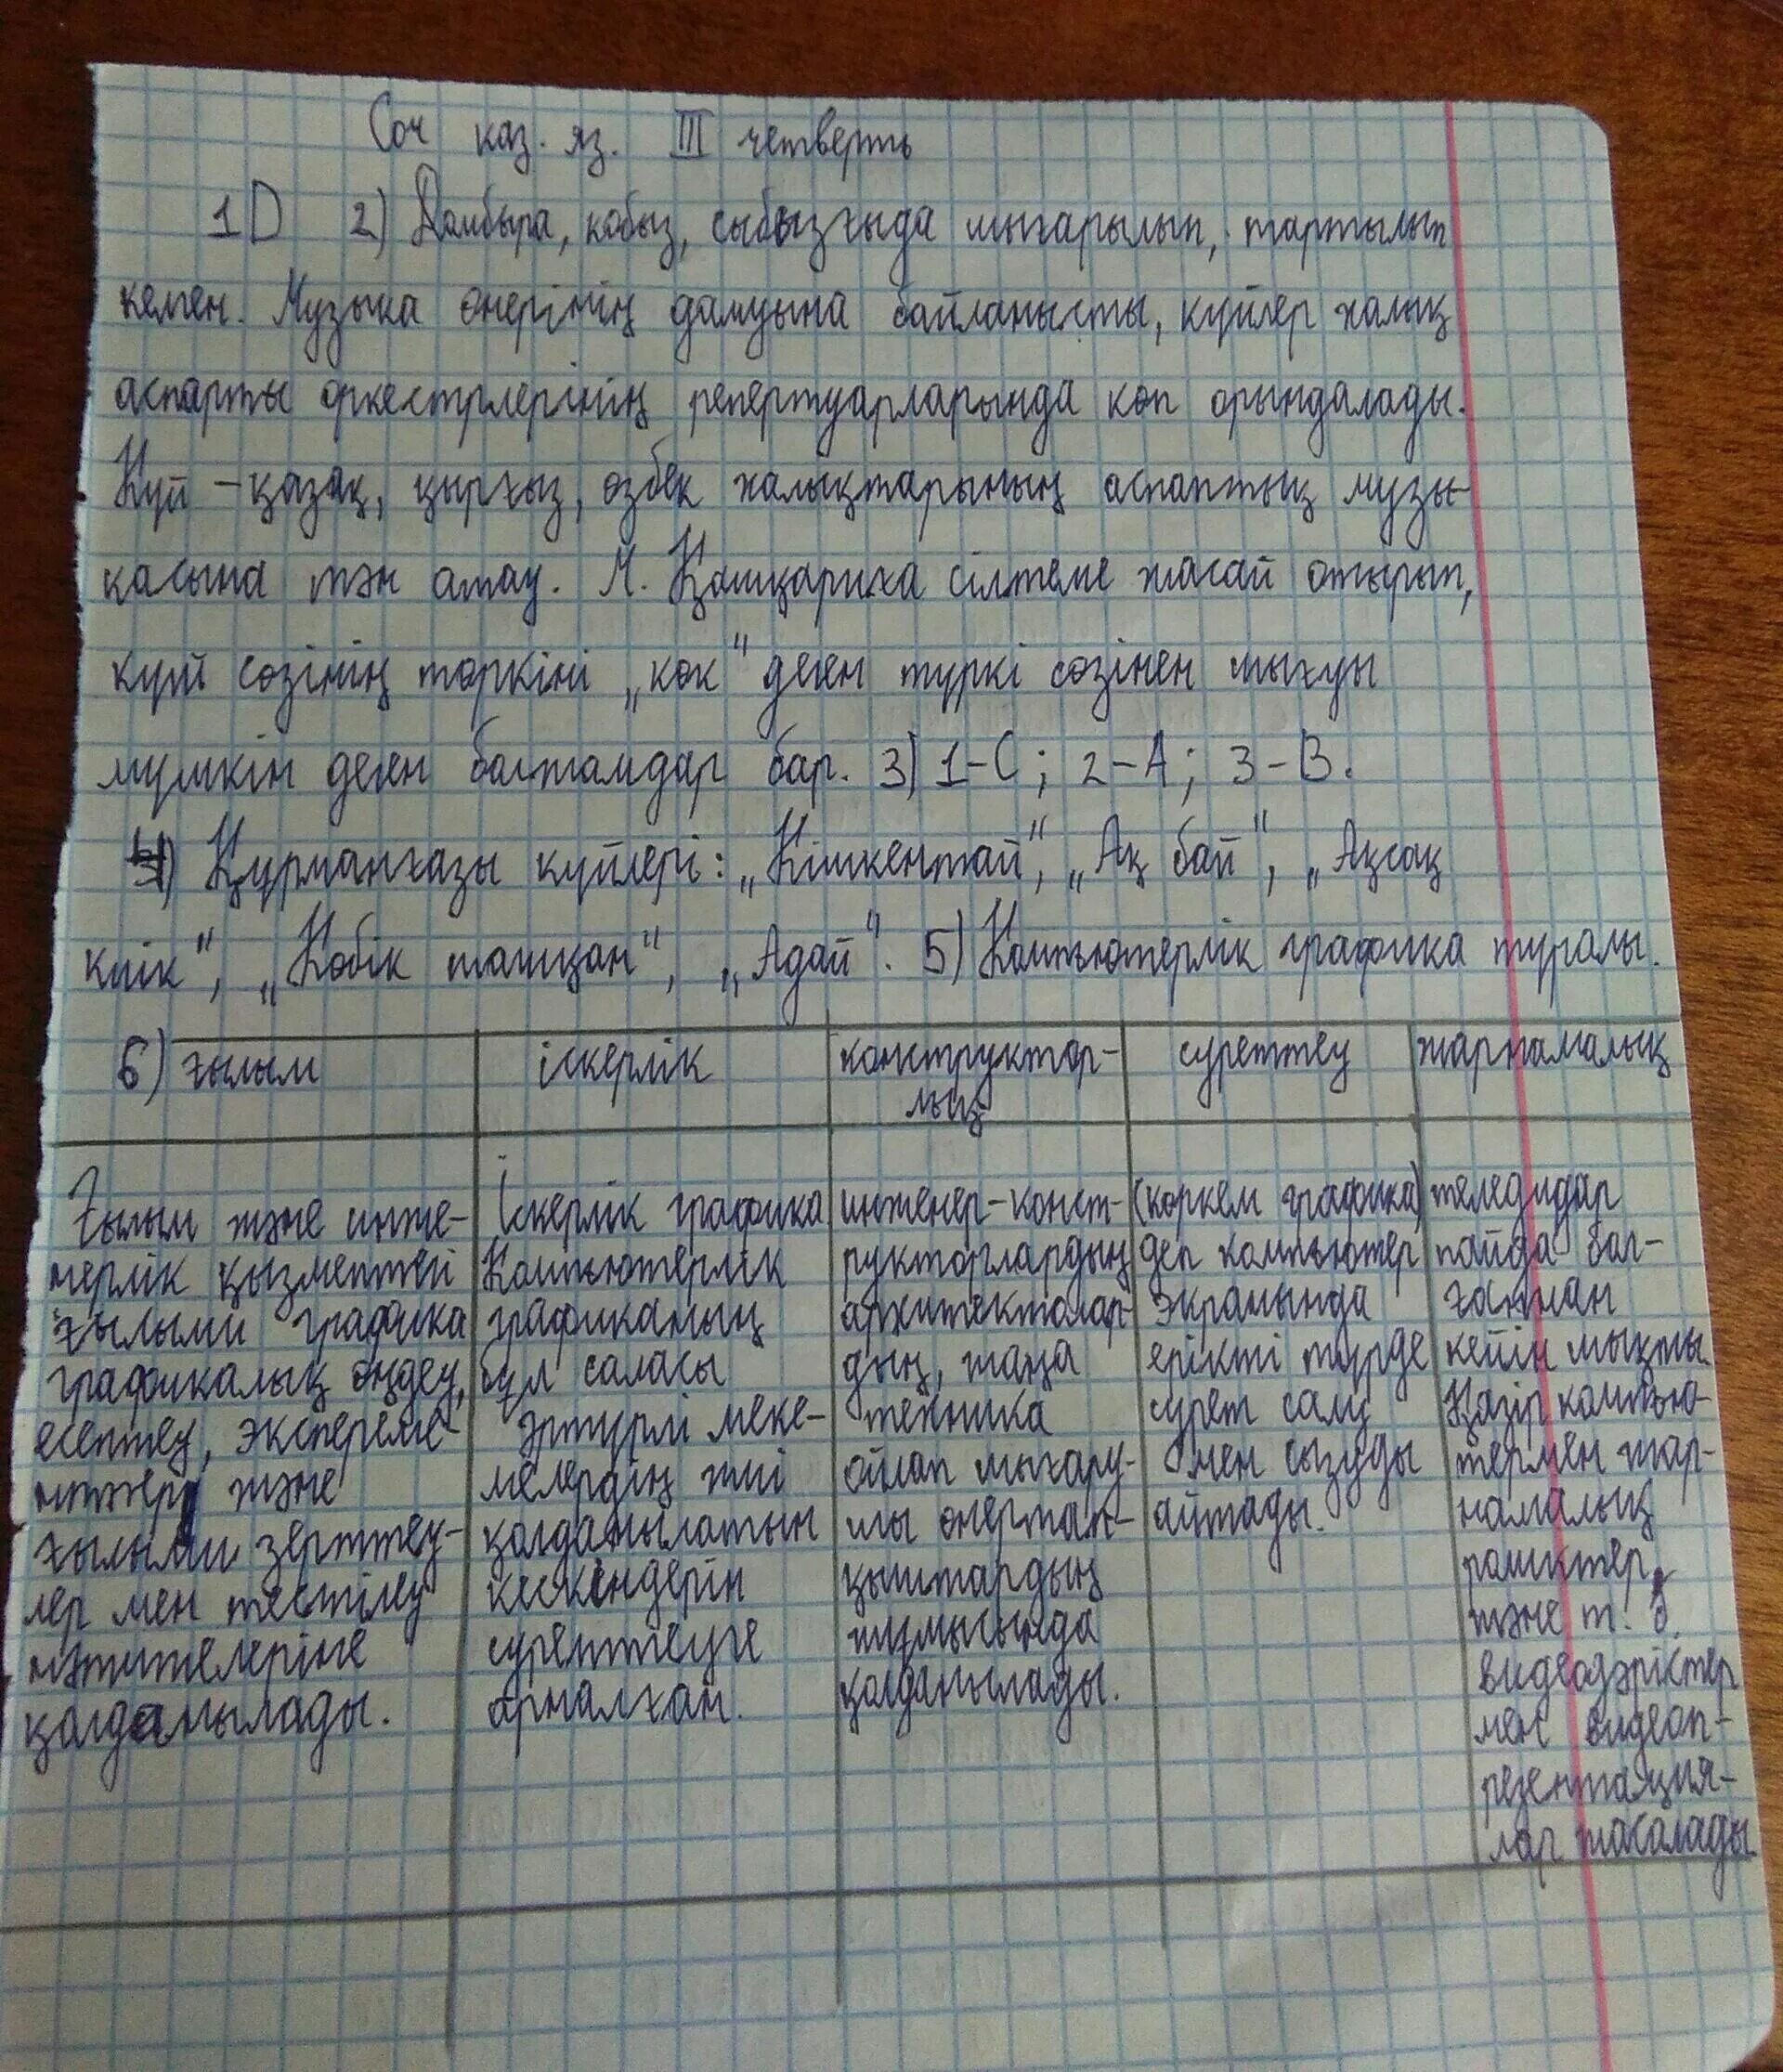 Соч каз. яз. III четверть
1D 2) Домбыра, кобыз, сыбызғыда шығарылып, тартылып
келген. Музыка өнерінің дамуына байланысты, күйлер халық
аспапты оркестрлерінің репертуарларында көп орындалады.
Күй – қазақ, қырғыз, өзбек халықтарының аспаптық музы-
касына тән атау. М. Қашқариға сілтеме жасай отырып,
күй сөзінің төркіні „көк" деген түркі сөзінен шығуы
мүмкін деген болжамдар бар. 3) 1-C; 2-A; 3-B.
4) Құрманғазы күйлері: „Кішкентай", „Ақ бай", „Ақсақ
киік", „Көбік шашқан", „Адай". 5) Компьютерлік графика туралы.
6) ғылым | іскерлік | конструктор-лық | суреттеу | жарнамалық
Ғылым және инже-
нерлік қызметтей
ғылыми графика
графикалық өңдеу,
есептеу, эксперемe-
нттер және
ғылыми зерттеу-
лер мен тестілеу
нәтижелеріне
қолданылады.
Іскерлік графика
Компьютерлік
графиканың
бұл саласы
әртүрлі меке-
мелердің жиі
қолданылатын
кескіндерін
суреттеуге
арналған.
инженер-конст-
рукторлардың
архитекторлар-
дың, жаңа
техника
ойлап шығару-
шы өнертап-
қыштардың
жұмысында
қолданылады.
(көркем графика)
деп компьютер
экранында
ерікті түрде
сурет салу
мен сызуды
айтады.
теледидар
пайда бол-
ғаннан
кейін мықты.
Қазір компью-
термен жар-
намалық
роликтер,
және т. б.
видеодәріктер
мен видеоп-
резентация-
лар жасалады